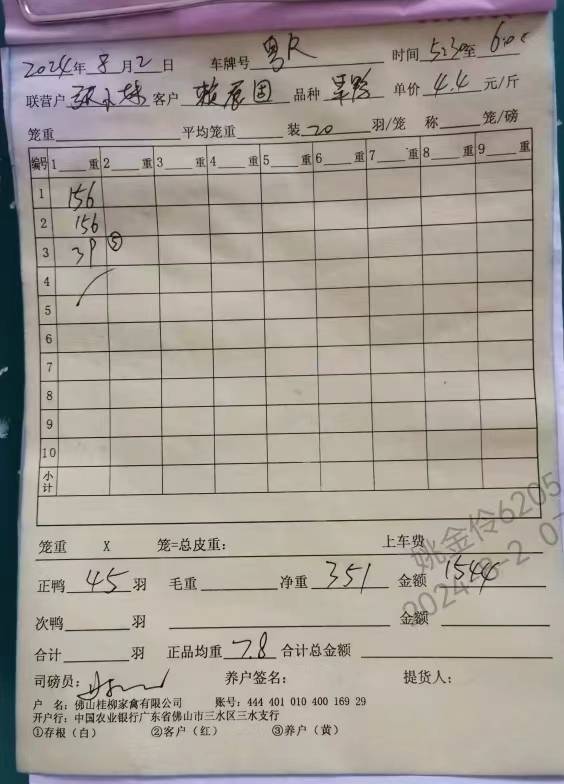 2024年8月2日 车牌号 粤R 时间 5:30至6:00
联营户 张小妹 客户 赖展国 品种 单价 4.4 元/斤
笼重 平均笼重 装 20 羽/笼 称 笼/磅
编号 1 重 2 重 3 重 4 重 5 重 6 重 7 重 8 重 9 重
1 156
2 156
3 39 ⑤
4
5
6
7
8
9
10
小计
笼重 X 笼=总皮重: 上车费
正鸭 45 羽 毛重 净重 351 金额 1544
次鸭 羽 金额
合计 羽 正品均重 7.8 合计总金额
司磅员: 养户签名: 提货人:
户 名: 佛山桂柳家禽有限公司 账号: 444 401 010 400 169 29
开户行: 中国农业银行广东省佛山市三水区三水支行
①存根（白） ②客户（红） ③养户（黄）
姚金伶6205
2024-8-2 07